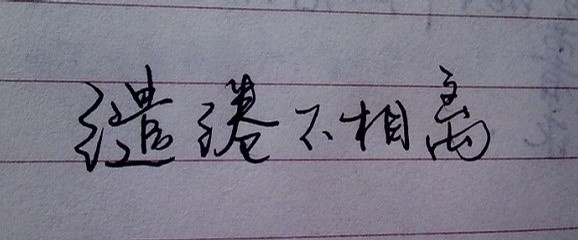 缱绻不相离